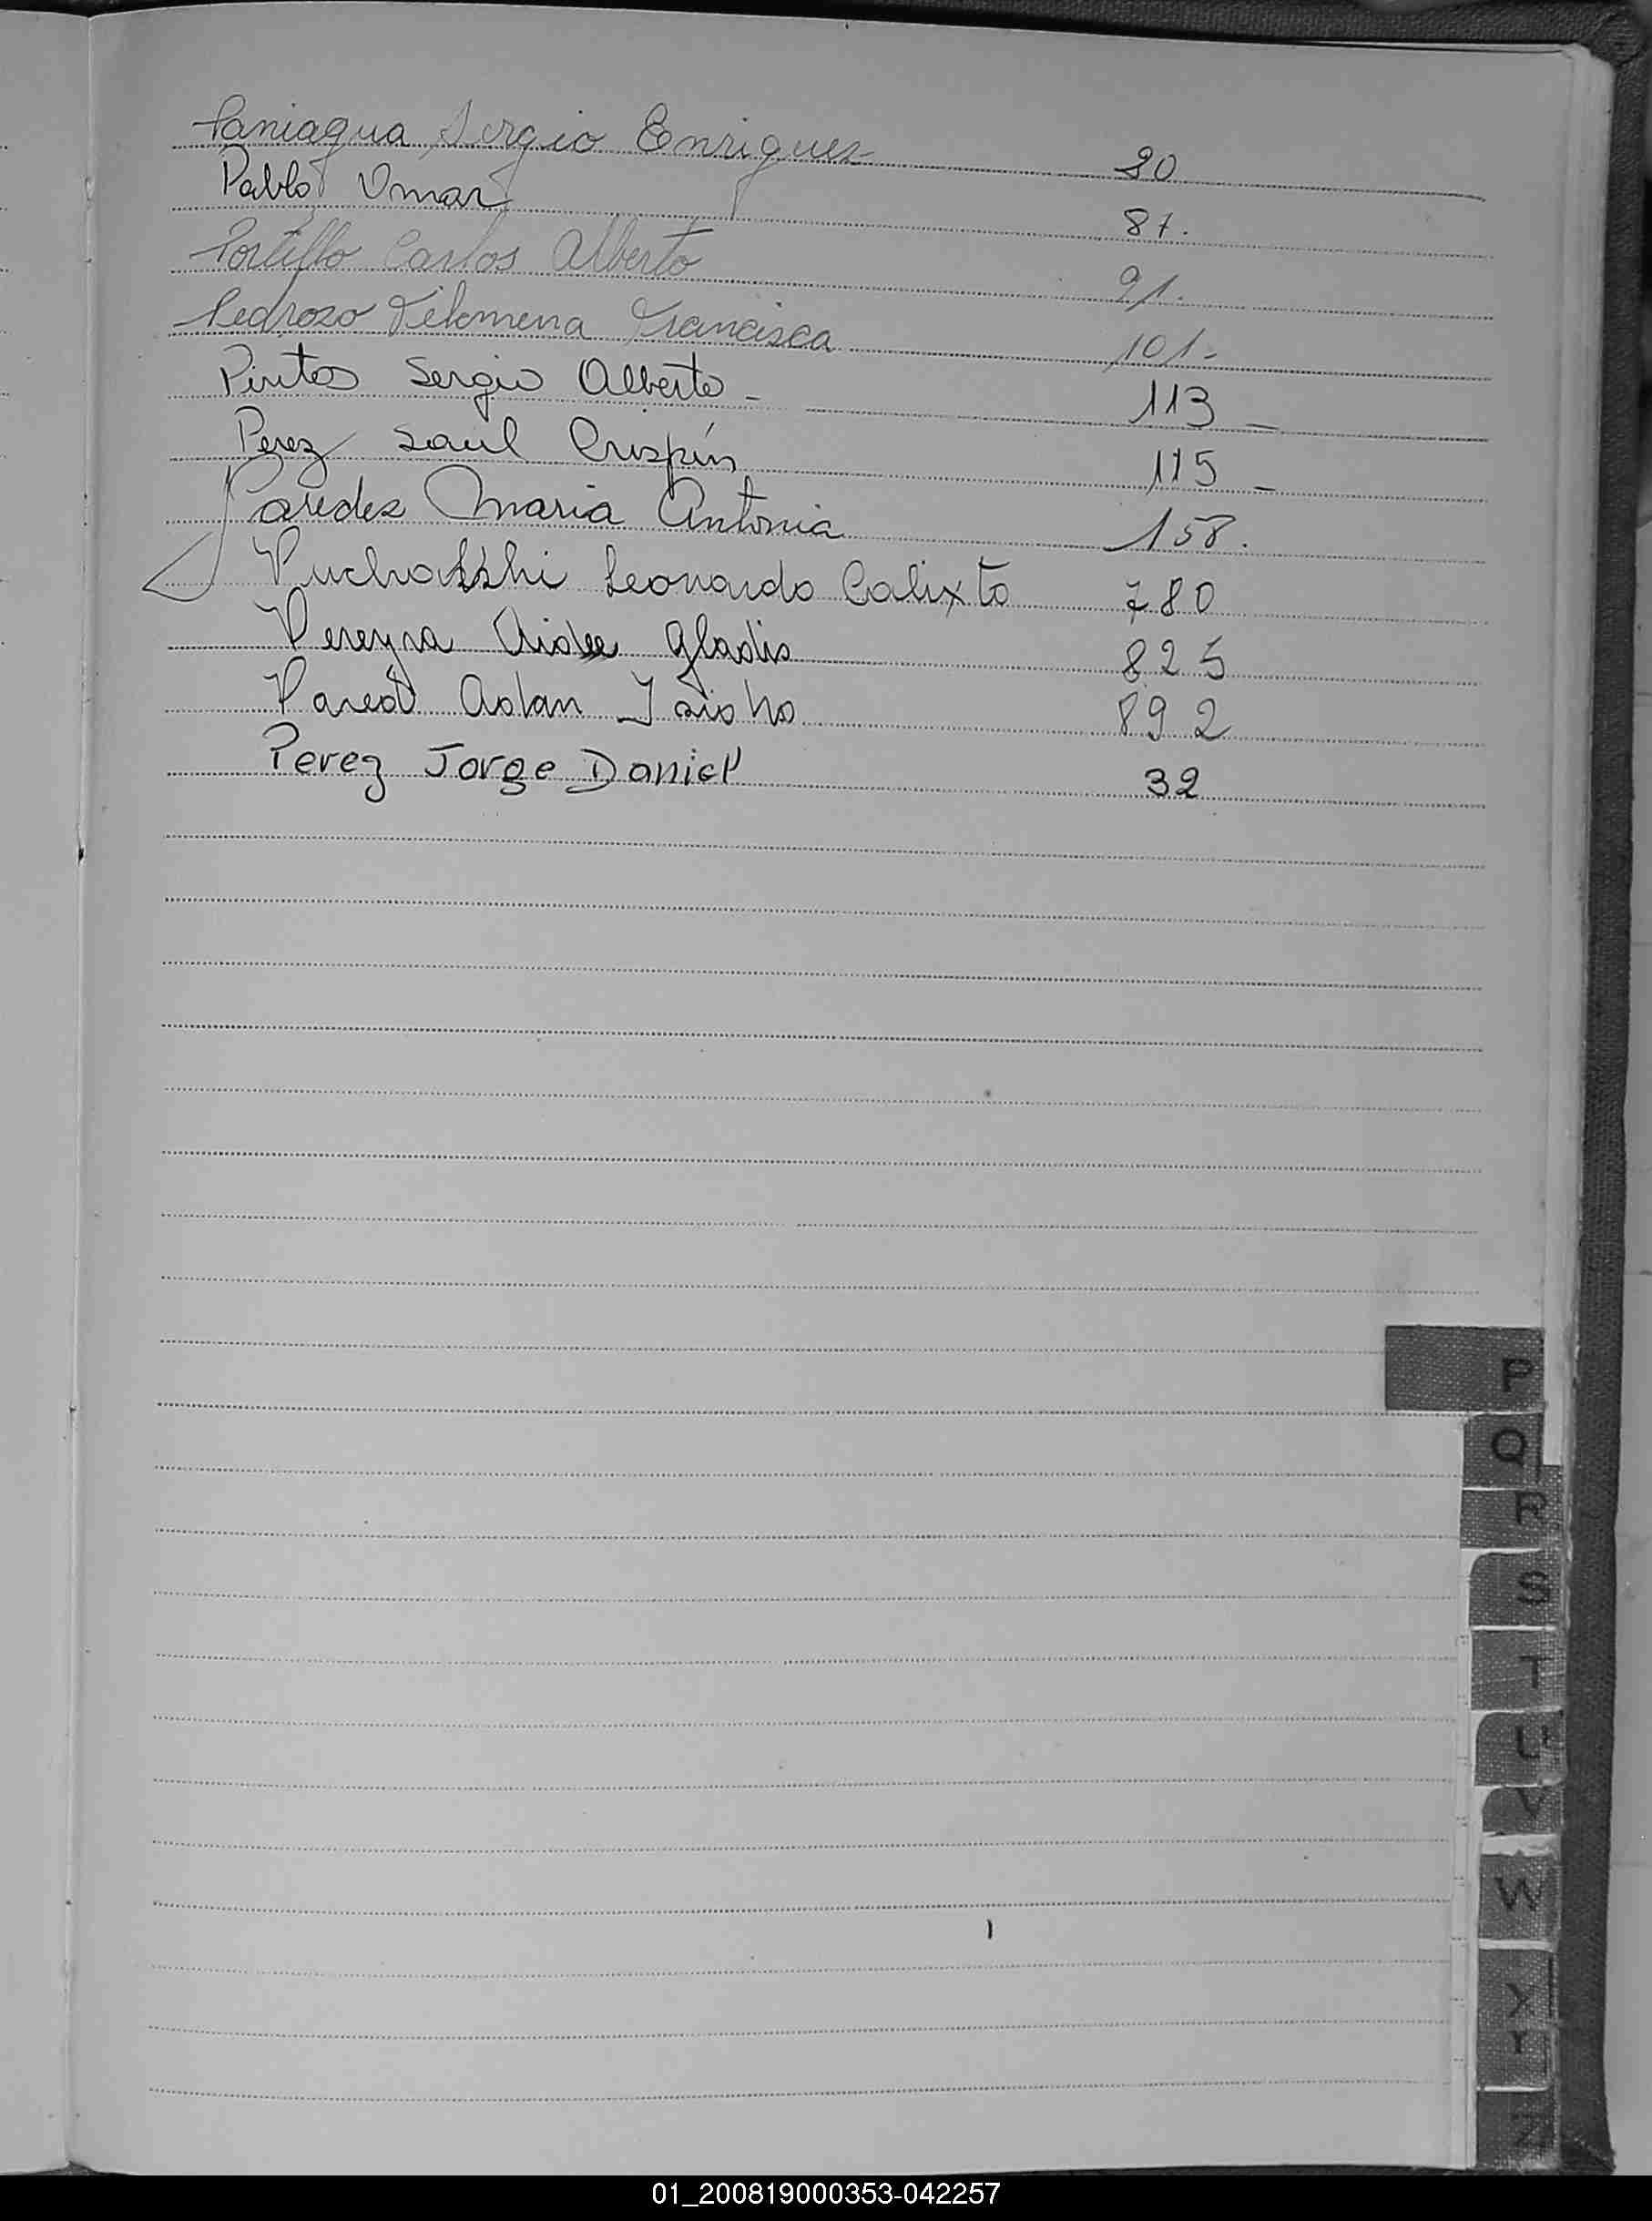 Paniagua Sergio Enriquez 80
Pablo Omar 87.
Portillo Carlos Alberto 91.
Pedrozo Filomena Francisca 101-
Pintos Sergio Alberto - 113 -
Perez Saul Crispín 115 -
Paredez Maria Antonia 158.
Leonardo Calixto 780
Pereyra Aidee Gladis 825
Pared 892
Perez Jorge Daniel 32
P
Q
R
S
T
U
V
W
X
Y
Z
01_200819000353-042257